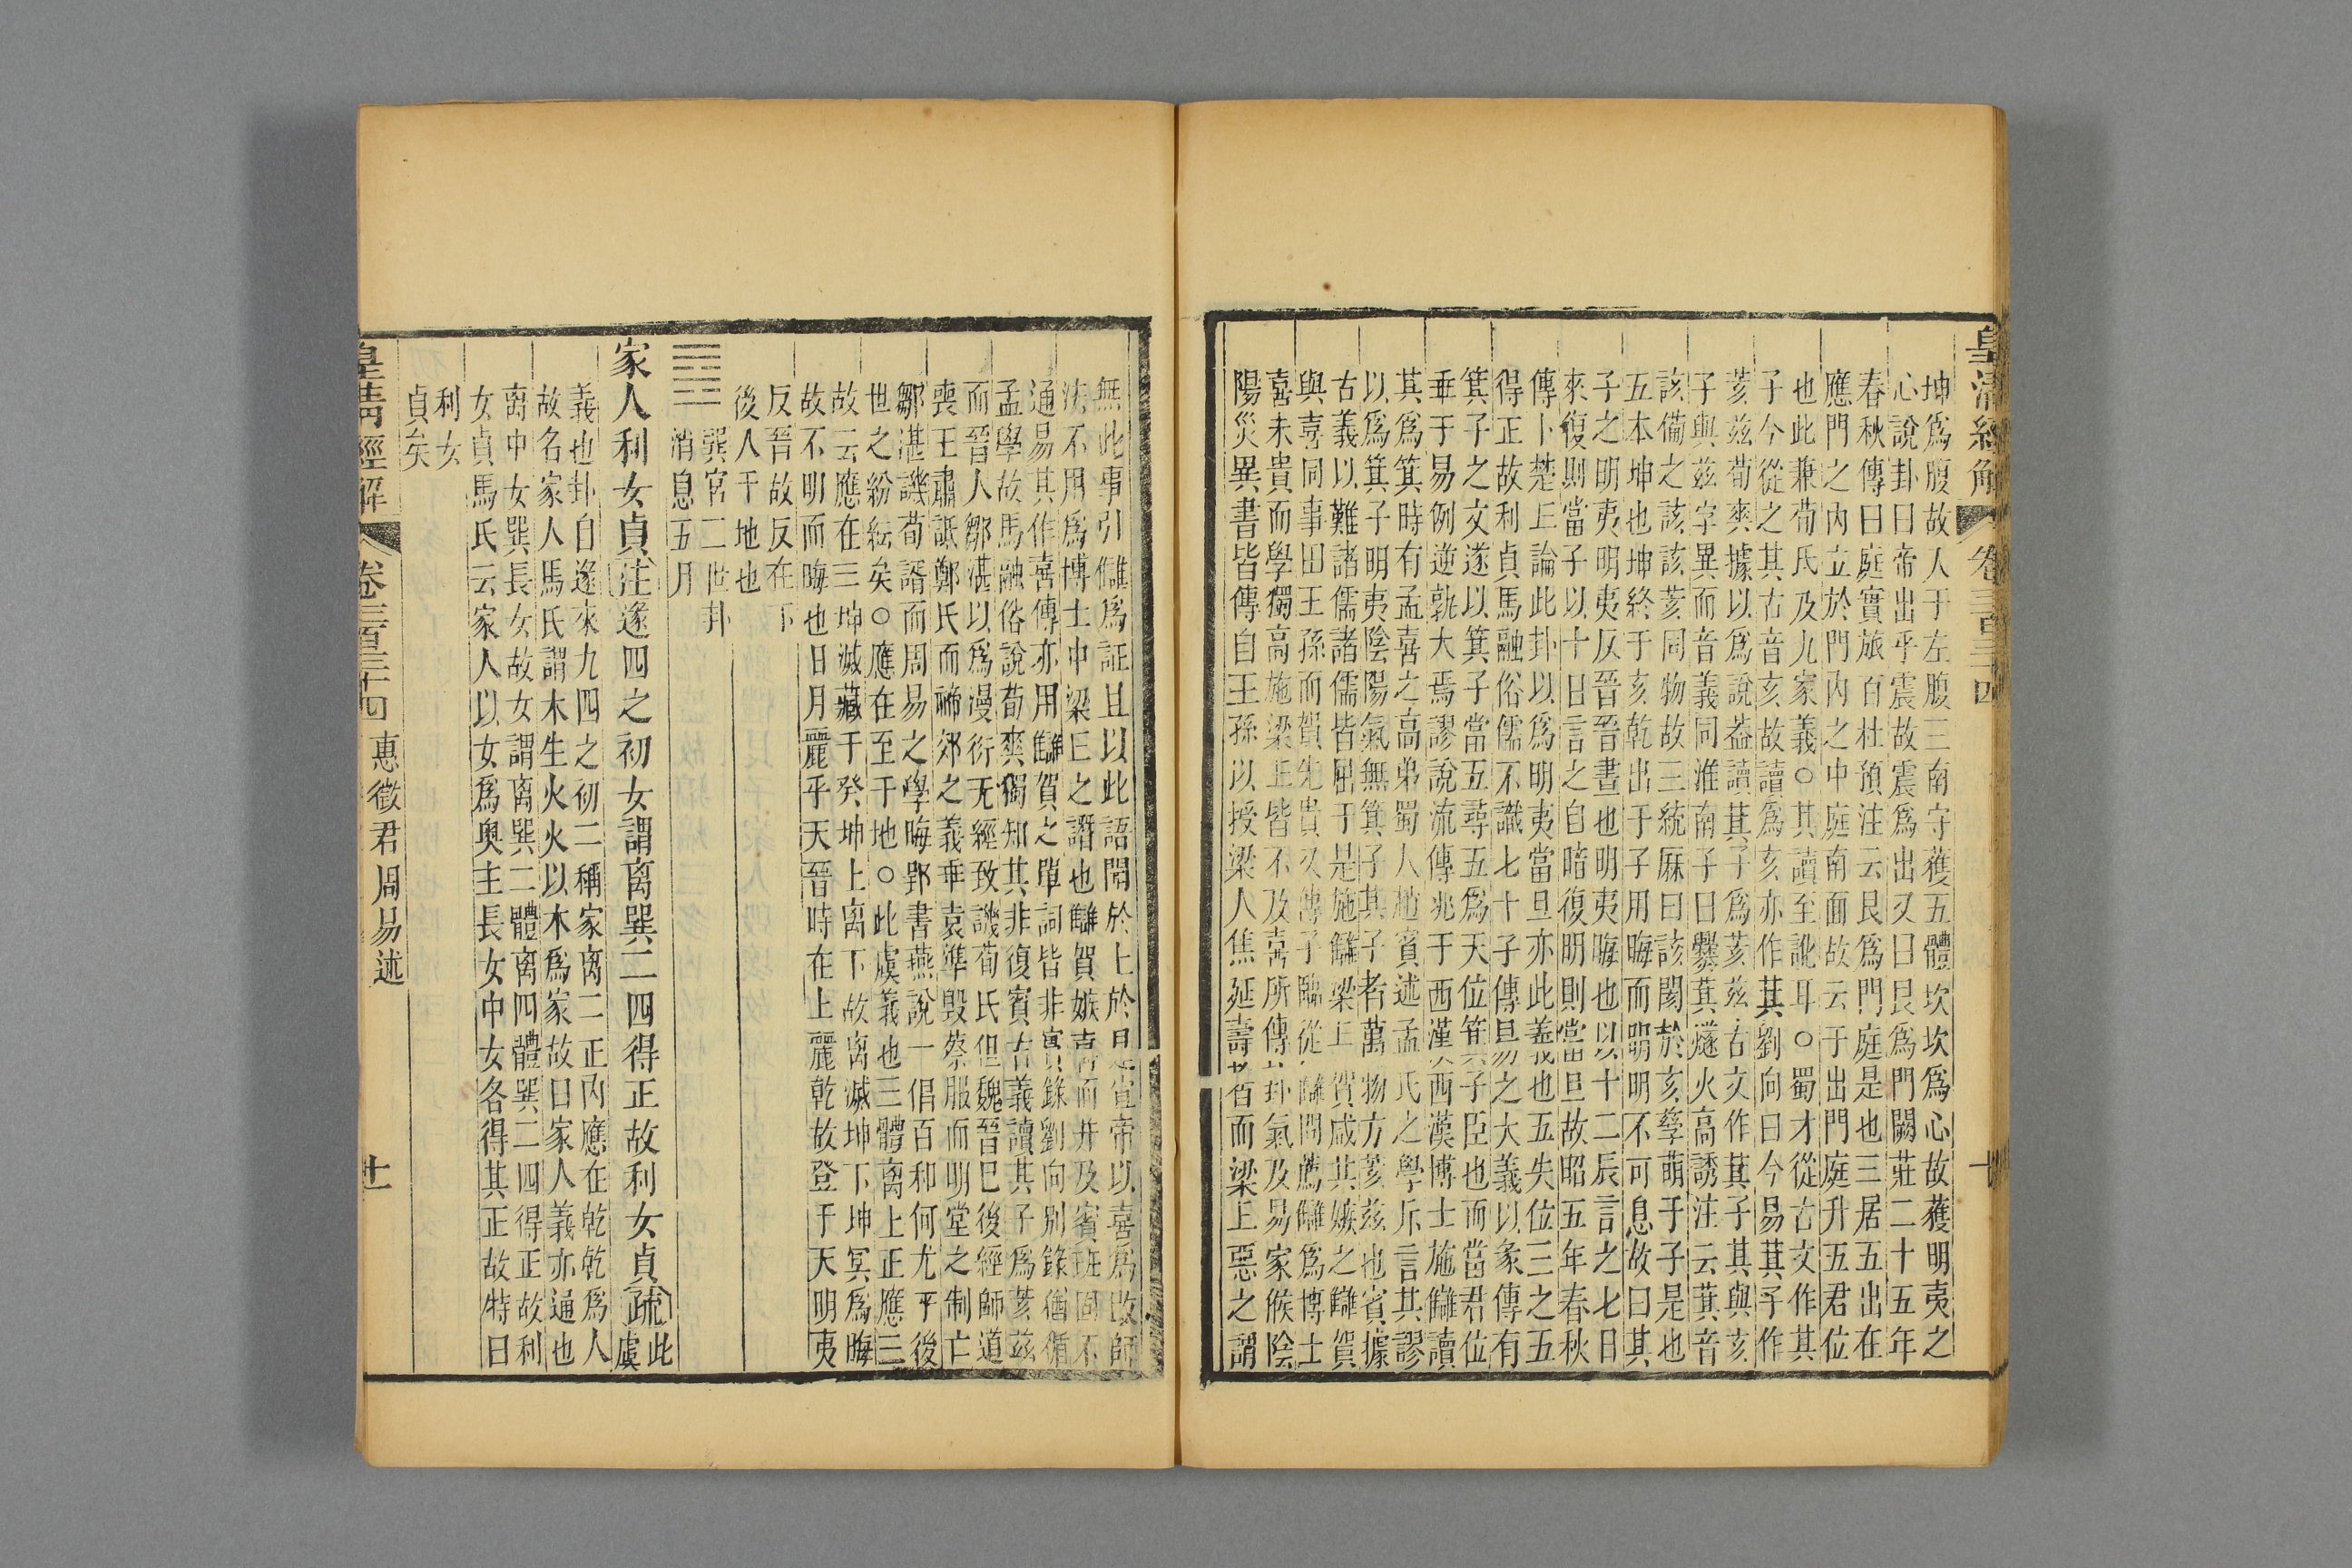 皇清經解 卷三百三十四 十
坤爲腹故人于左腹三南守獲五體坎坎爲心故獲明夷之
心說卦曰帝出乎震故震爲出又曰艮爲門闕莊二十五年
春秋傳曰庭實旅百杜預注云艮爲門庭是也三居五出在
應門之內立於門內之中庭南面故云于出門庭升五君位
也此兼荀氏及九家義○其讀至訛耳○蜀才從古文作其
子今從之其古音亥故讀爲亥亦作萁劉向曰今易萁子作
荄茲荀爽據以爲說葢讀萁子爲荄茲古文作萁子其與亥
子與茲字異而音義同淮南子曰爨萁燧火高誘注云萁音
該備之該該荄同物故三統厤曰該閡於亥孳萌于子是也
五本坤也坤終于亥乾出于子用晦而明明不可息故曰其
子之明夷明夷反晉晉晝也明夷晦也以十二辰言之七日
來復則當子以十日言之自暗復明則當旦故昭五年春秋
傳卜楚丘論此卦以爲明夷當旦亦此義也五失位三之五
得正故利貞馬融俗儒不識七十子傳易之大義以彖傳有
箕子之文遂以箕子當五尋五爲天位箕子臣也而當君位
乖于易例逆孰大焉謬說流傳兆于西漢西漢博士施讎讀
其爲箕時有孟喜之高弟蜀人趙賓述孟氏之學斥言其謬
以爲箕子明夷陰陽氣無箕子其子者萬物方荄茲也賓據
古義以難諸儒諸儒皆屈于是施讎梁丘賀咸共嫉之讎賀
與喜同事田王孫而賀先貴又傳子臨從讎問薦讎爲博士
喜未貴而學獨高施梁丘皆不及喜所傳卦氣及易家候陰
陽災異書皆傳自王孫以授梁人焦延壽者而梁丘惡之謂
無此事引讎爲証且以此語聞於上於是宣帝以喜爲改師
法不用爲博士中梁丘之譖也讎賀嫉喜而并及賓班固不
通易其作喜傳亦用讎賀之單詞皆非實錄劉向別錄猶循
孟學故馬融俗說荀爽獨知其非復賓古義讀其子爲荄茲
而晉人鄒湛以爲漫衍无經致譏荀氏但魏晉已後經師道
喪王肅詆鄭氏而禘郊之義乖袁準毀蔡服而明堂之制亡
鄒湛譏荀諝而周易之學晦郢書燕說一倡百和何尤乎後
世之紛紜矣○應在至于地○此虞義也三體离上正應三
故云應在三坤滅藏于癸坤上离下故离滅坤下坤冥爲晦
故不明而晦也日月麗乎天晉時在上麗乾故登于天明夷
反晉故反在下
後人于地也
巽宮二世卦
消息五月
家人利女貞注遂四之初女謂离巽二四得正故利女貞疏此虞
義也卦自遂來九四之初二稱家离二正內應在乾乾爲人
故名家人馬氏謂木生火火以木爲家故曰家人義亦通也
离中女巽長女故女謂离巽二體离四體巽二四得正故利
女貞馬氏云家人以女爲奧主長女中女各得其正故特曰
利女
貞矣
皇清經解 卷三百三十四 惠徵君周易述 十一